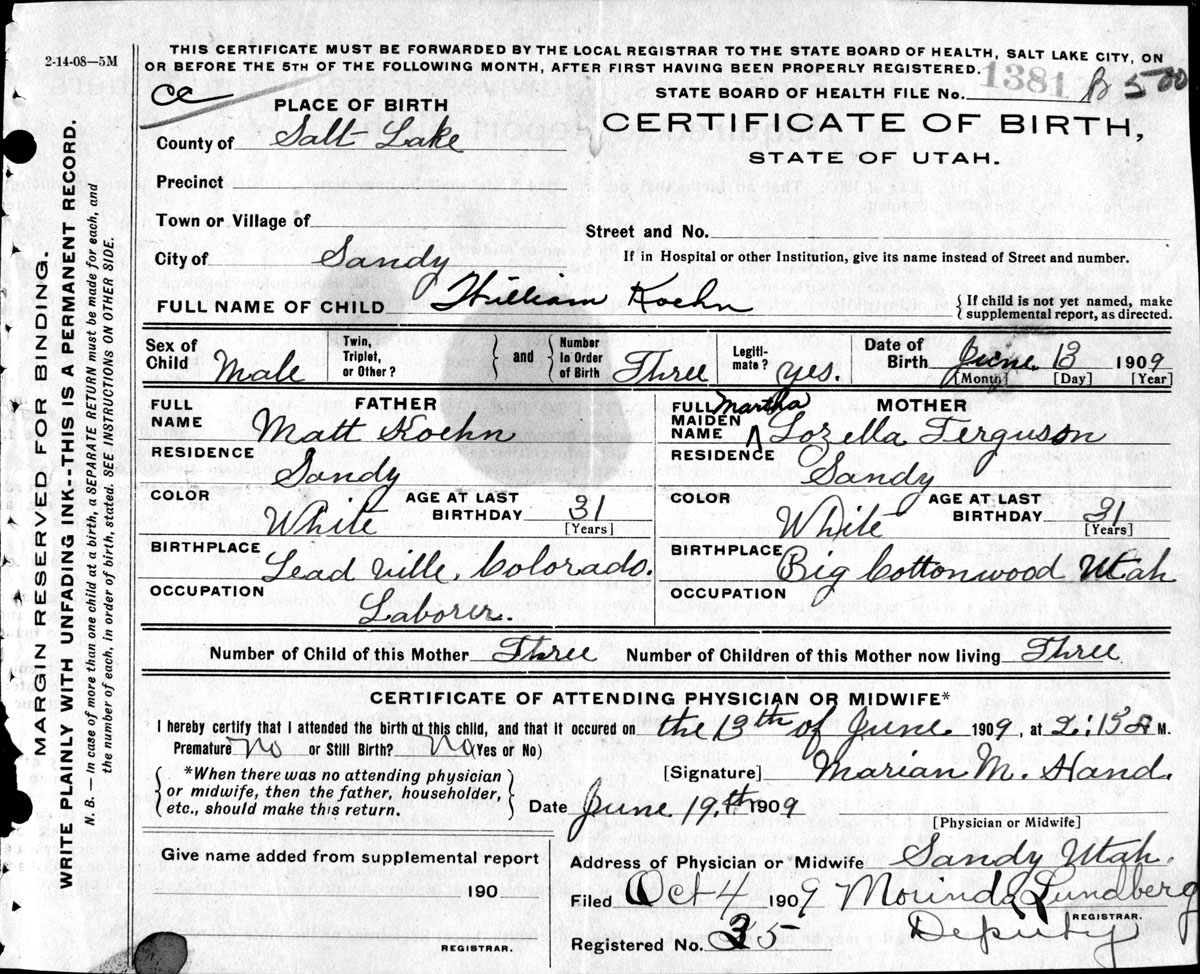 2-14-08—5M
THIS CERTIFICATE MUST BE FORWARDED BY THE LOCAL REGISTRAR TO THE STATE BOARD OF HEALTH, SALT LAKE CITY, ON
OR BEFORE THE 5TH OF THE FOLLOWING MONTH, AFTER FIRST HAVING BEEN PROPERLY REGISTERED.
STATE BOARD OF HEALTH FILE No. 1381
PLACE OF BIRTH
CERTIFICATE OF BIRTH,
STATE OF UTAH.
County of Salt Lake
Precinct
Town or Village of
Street and No.
City of Sandy
If in Hospital or other Institution, give its name instead of Street and number.
FULL NAME OF CHILD William Koehn
{If child is not yet named, make
supplemental report, as directed.
Sex of Child Male
Twin, Triplet, or Other? } and { Number in Order of Birth Three
Legitimate? yes.
Date of Birth June 13 1909
[Month] [Day] [Year]
FATHER
FULL NAME Matt Koehn
RESIDENCE Sandy
COLOR White AGE AT LAST BIRTHDAY 31 [Years]
BIRTHPLACE Lead ville, Colorado.
OCCUPATION Laborer.
MOTHER
FULL MAIDEN NAME Martha Lozella Ferguson
RESIDENCE Sandy
COLOR White AGE AT LAST BIRTHDAY 31 [Years]
BIRTHPLACE Big Cottonwood Utah
OCCUPATION
Number of Child of this Mother Three Number of Children of this Mother now living Three
CERTIFICATE OF ATTENDING PHYSICIAN OR MIDWIFE*
I hereby certify that I attended the birth of this child, and that it occured on the 13th of June 1909, at 2:15 A M.
Premature No or Still Birth? No (Yes or No)
{*When there was no attending physician
or midwife, then the father, householder,
etc., should make this return.}
[Signature] Marian M. Hand.
Date June 19.th 1909
[Physician or Midwife]
Give name added from supplemental report
190
REGISTRAR.
Address of Physician or Midwife Sandy Utah.
Filed Oct 4 1909 Morinda Lundberg
REGISTRAR.
Deputy
Registered No. 35
MARGIN RESERVED FOR BINDING.
WRITE PLAINLY WITH UNFADING INK--THIS IS A PERMANENT RECORD.
N. B. — In case of more than one child at a birth, a SEPARATE RETURN must be made for each, and
the number of each, in order of birth, stated. SEE INSTRUCTIONS ON OTHER SIDE.